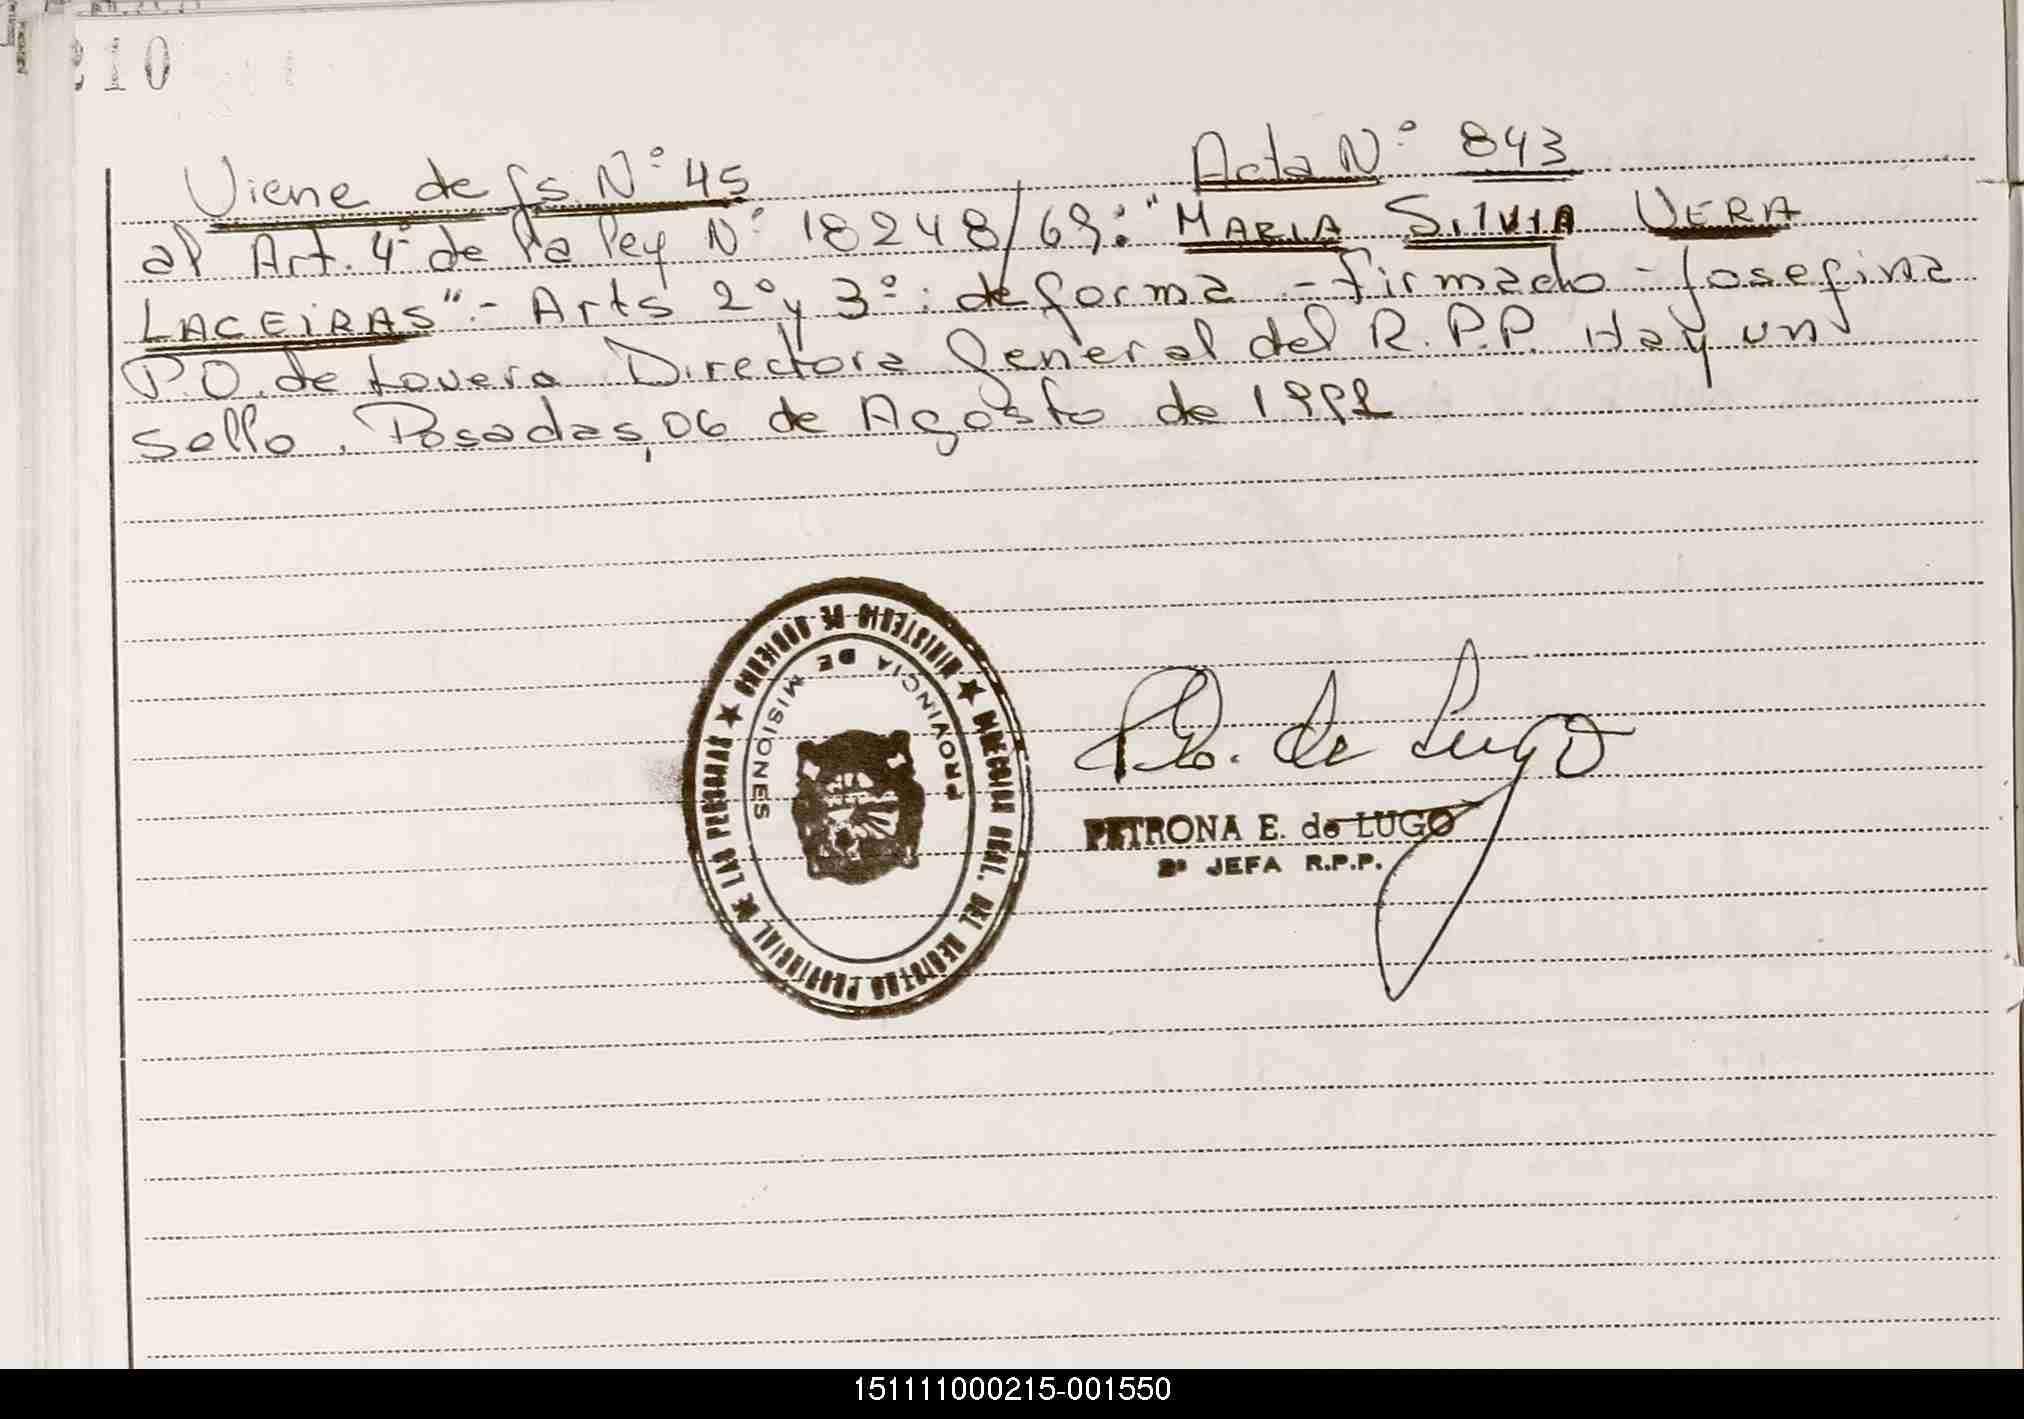 210
Viene de fs. Nº 45 Acta Nº 843
al Art. 4º de la ley Nº 18248/69: "MARIA SILVIA VERA
LACEIRAS".- Arts 2º y 3º: de forma - firmado - Josefina
P.O. de Lovera Directora General del R.P.P. Hay un
sello. Posadas, 06 de Agosto de
MINISTERIO DE GOBIERNO
DIRECCION GRAL. DEL REGISTRO PROVINCIAL DE LAS PERSONAS
PROVINCIA DE MISIONES
de Lugo
PETRONA E. de LUGO
2ª JEFA R.P.P.
151111000215-001550